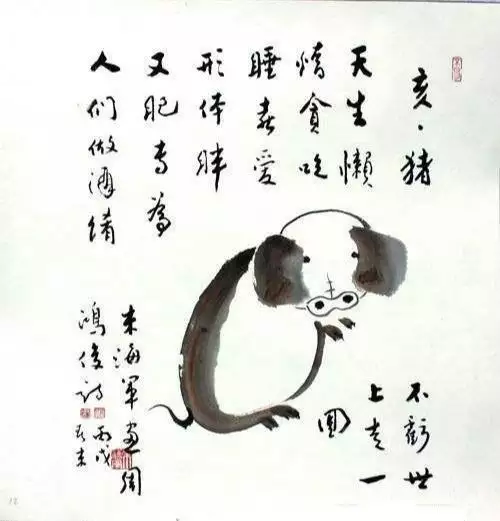 亥·猪
天生懒
惰贪吃
睡喜爱
形体胖
又肥专为
人们做酒
不虧世
上走一
海军画周
鸿俊诗
丙戌